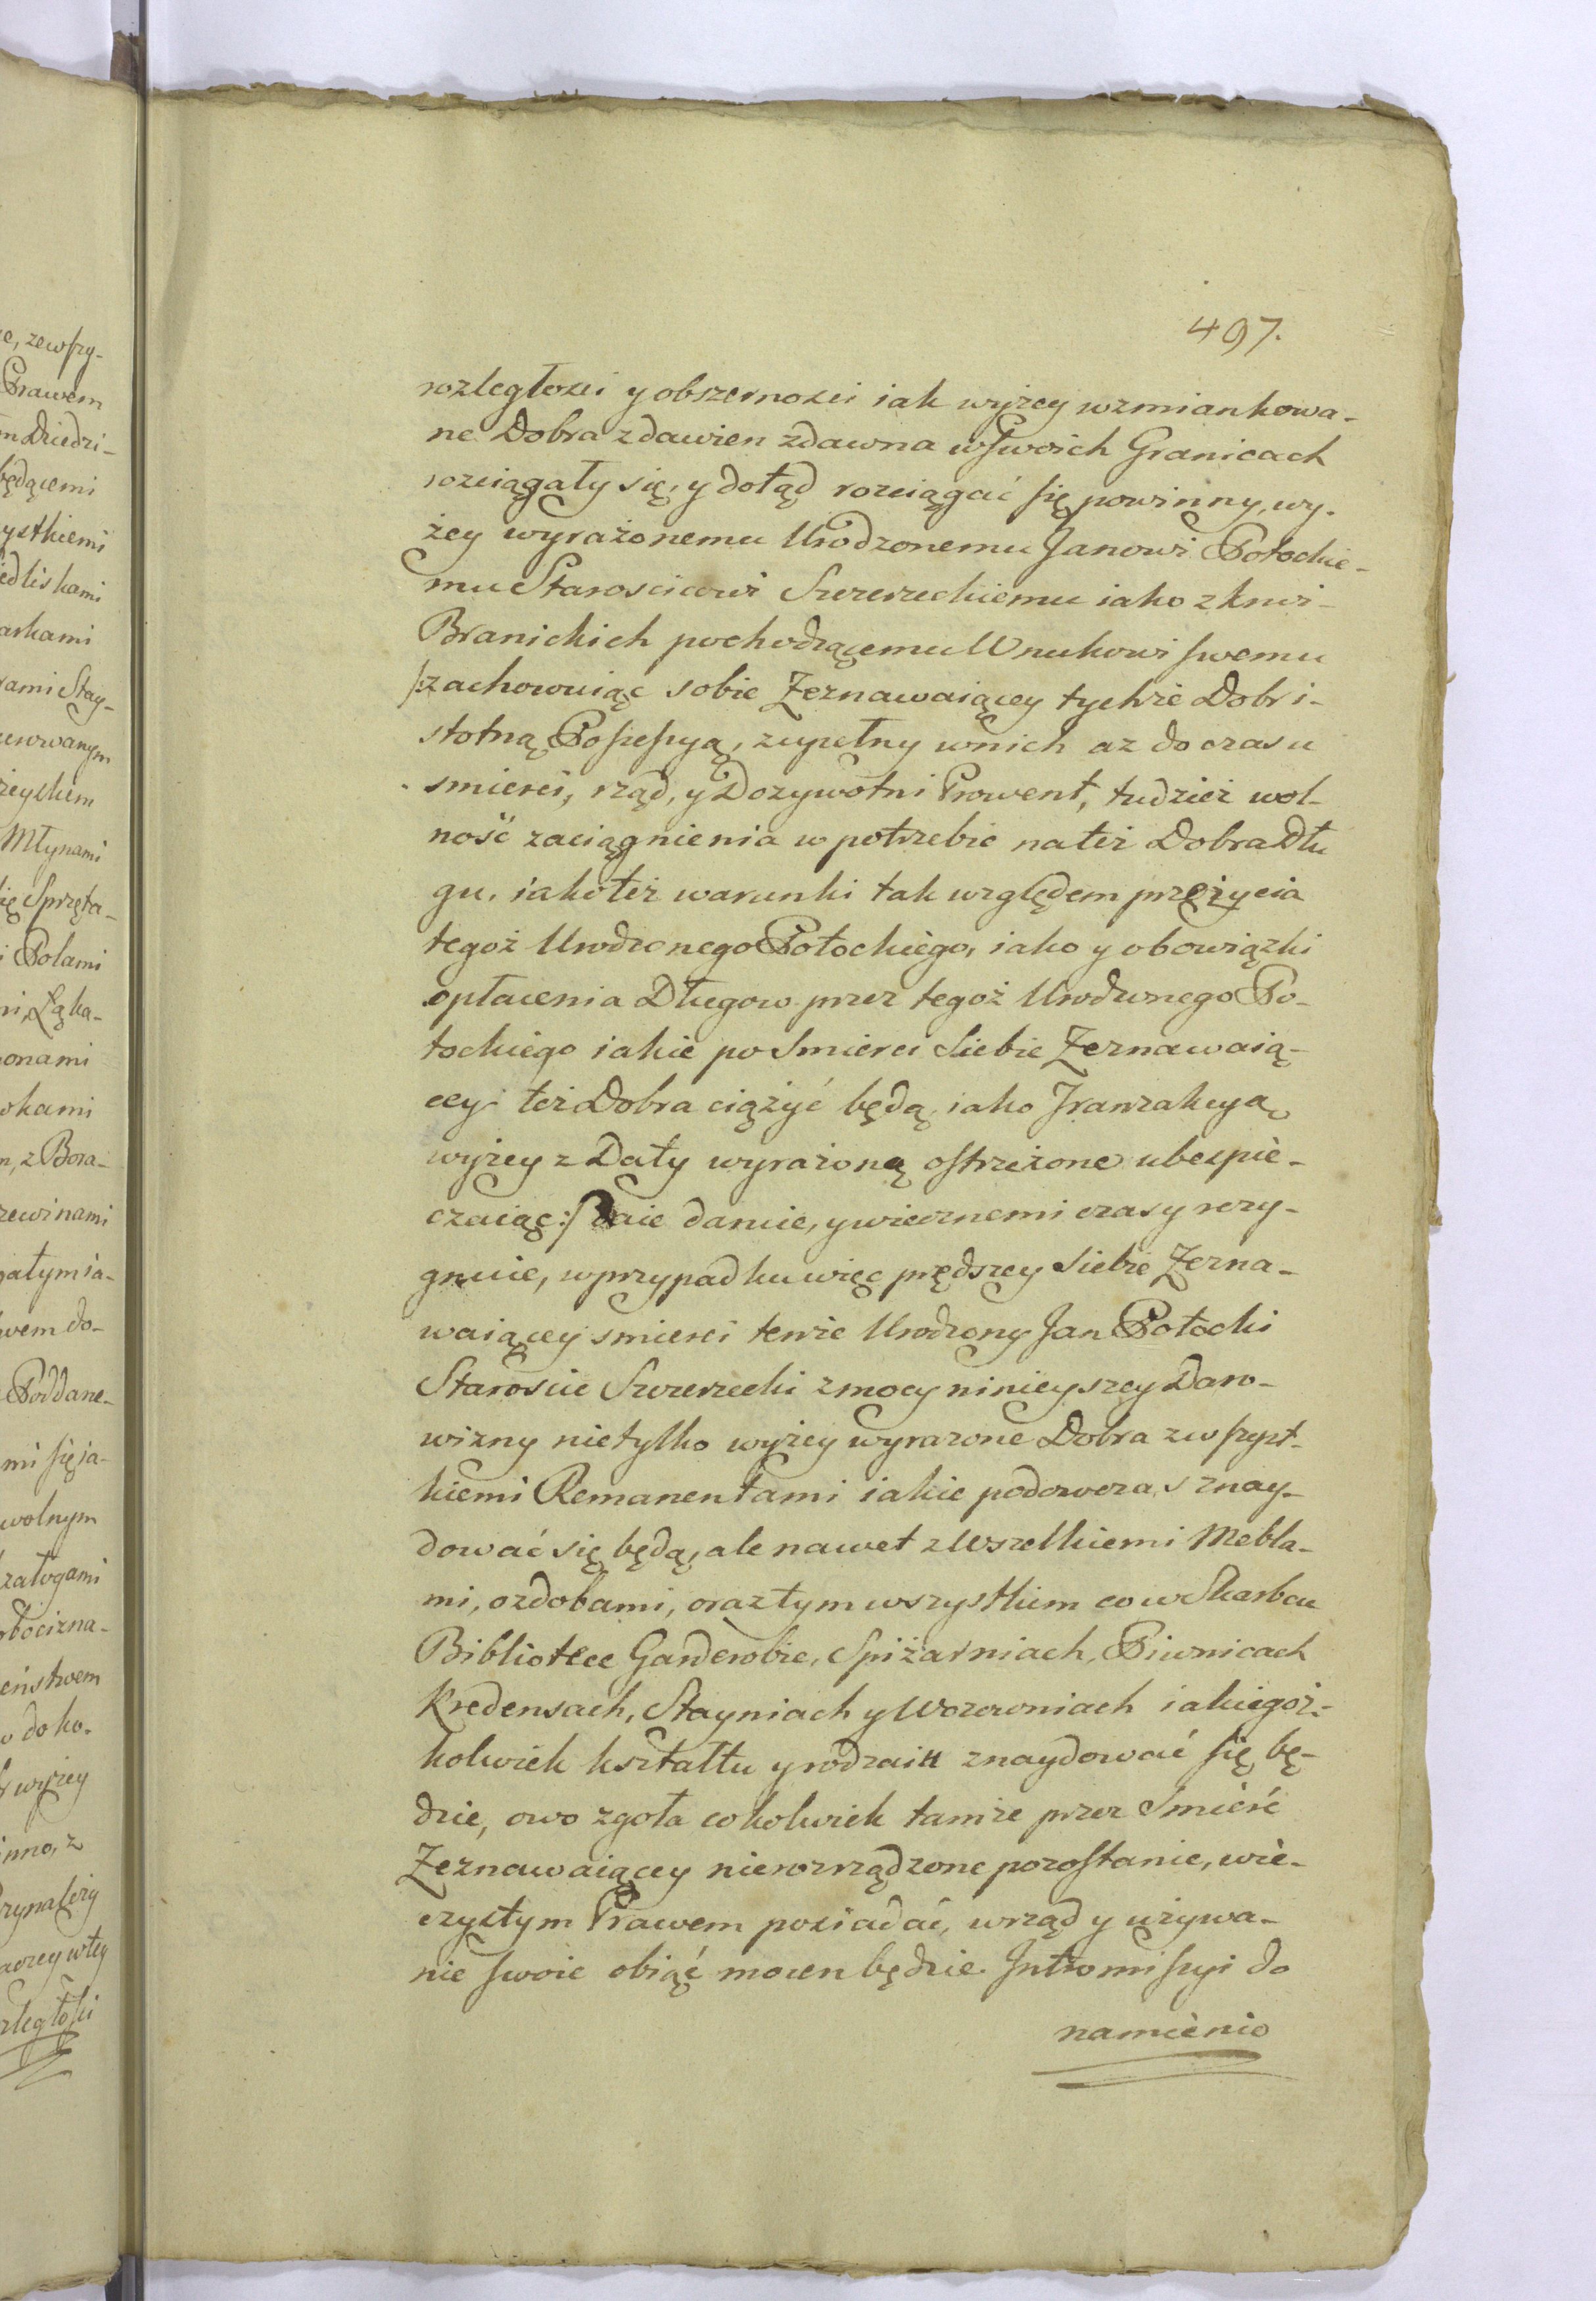 497.
rozległosci y obszernosci iak wyżey wzmiankowa-
ne Dobra zdawien zdawna w swoich Granicach
rozciągały się, y dotąd rozciągać się powinny, wy-
żey wyrażonemu Urodzonemu Janowi Potockie-
mu Staroscicowi Szczerzeckiemu iako z krwi-
Branickich pochodzącemu Wnukowi swemu
/:zachowuiąc sobie Zeznawaiącey tychże Dobr i-
stotną Possessyą, zupełny wnich az do czasu
smierci, rząd, y Dozywotni Prowent, tudzież wol-
ność zaciągnienia w potrzebie na też Dobra Dłu
gu, iakoteż warunki tak względem przeżycia
tegoż Urodzonego Potockiego, iako y obowiązki
opłacenia Długow przez tegoż Urodzonego Po-
tockiego iakie po Smierci Siebie Zeznawaią-
cey też Dobra ciążyć będą, iako Tranzakcyą
wyżey z Daty wyrażoną ostrzeżone ubezpie-
czaiąc:/ Daie daruie, y wiecznemi czasy rezy-
gnuie, w przypadku więc prędszey Siebie Zezna-
waiącey smierci tenże Urodzony Jan Potocki
Staroscic Szczerzecki z mocy ninieyszey Daro-
wizny nietylko wyżey wyrazone Dobra zwszyst-
kiemi Remanentami iakie podowczas znay-
dować się będą, ale nawet z Wszelkiemi Mebla-
mi, ozdobami, oraz tym wszystkim co w Skarbcu
Bibliotece Garderobie, Spiżarniach, Piwnicach
Kredensach, Stayniach y Wozowniach iakiegoż-
kolwiek kształtu y rodzaiu znaydować się bę-
dzie, owo zgoła cokolwiek tamże przez Smierć
Zeznawaiącey nierozrządzone pozostanie, wie-
czystym Prawem posiadać, w rząd y używa-
nie swoie obiąć mocen będzie. Intromissyi do
namienio